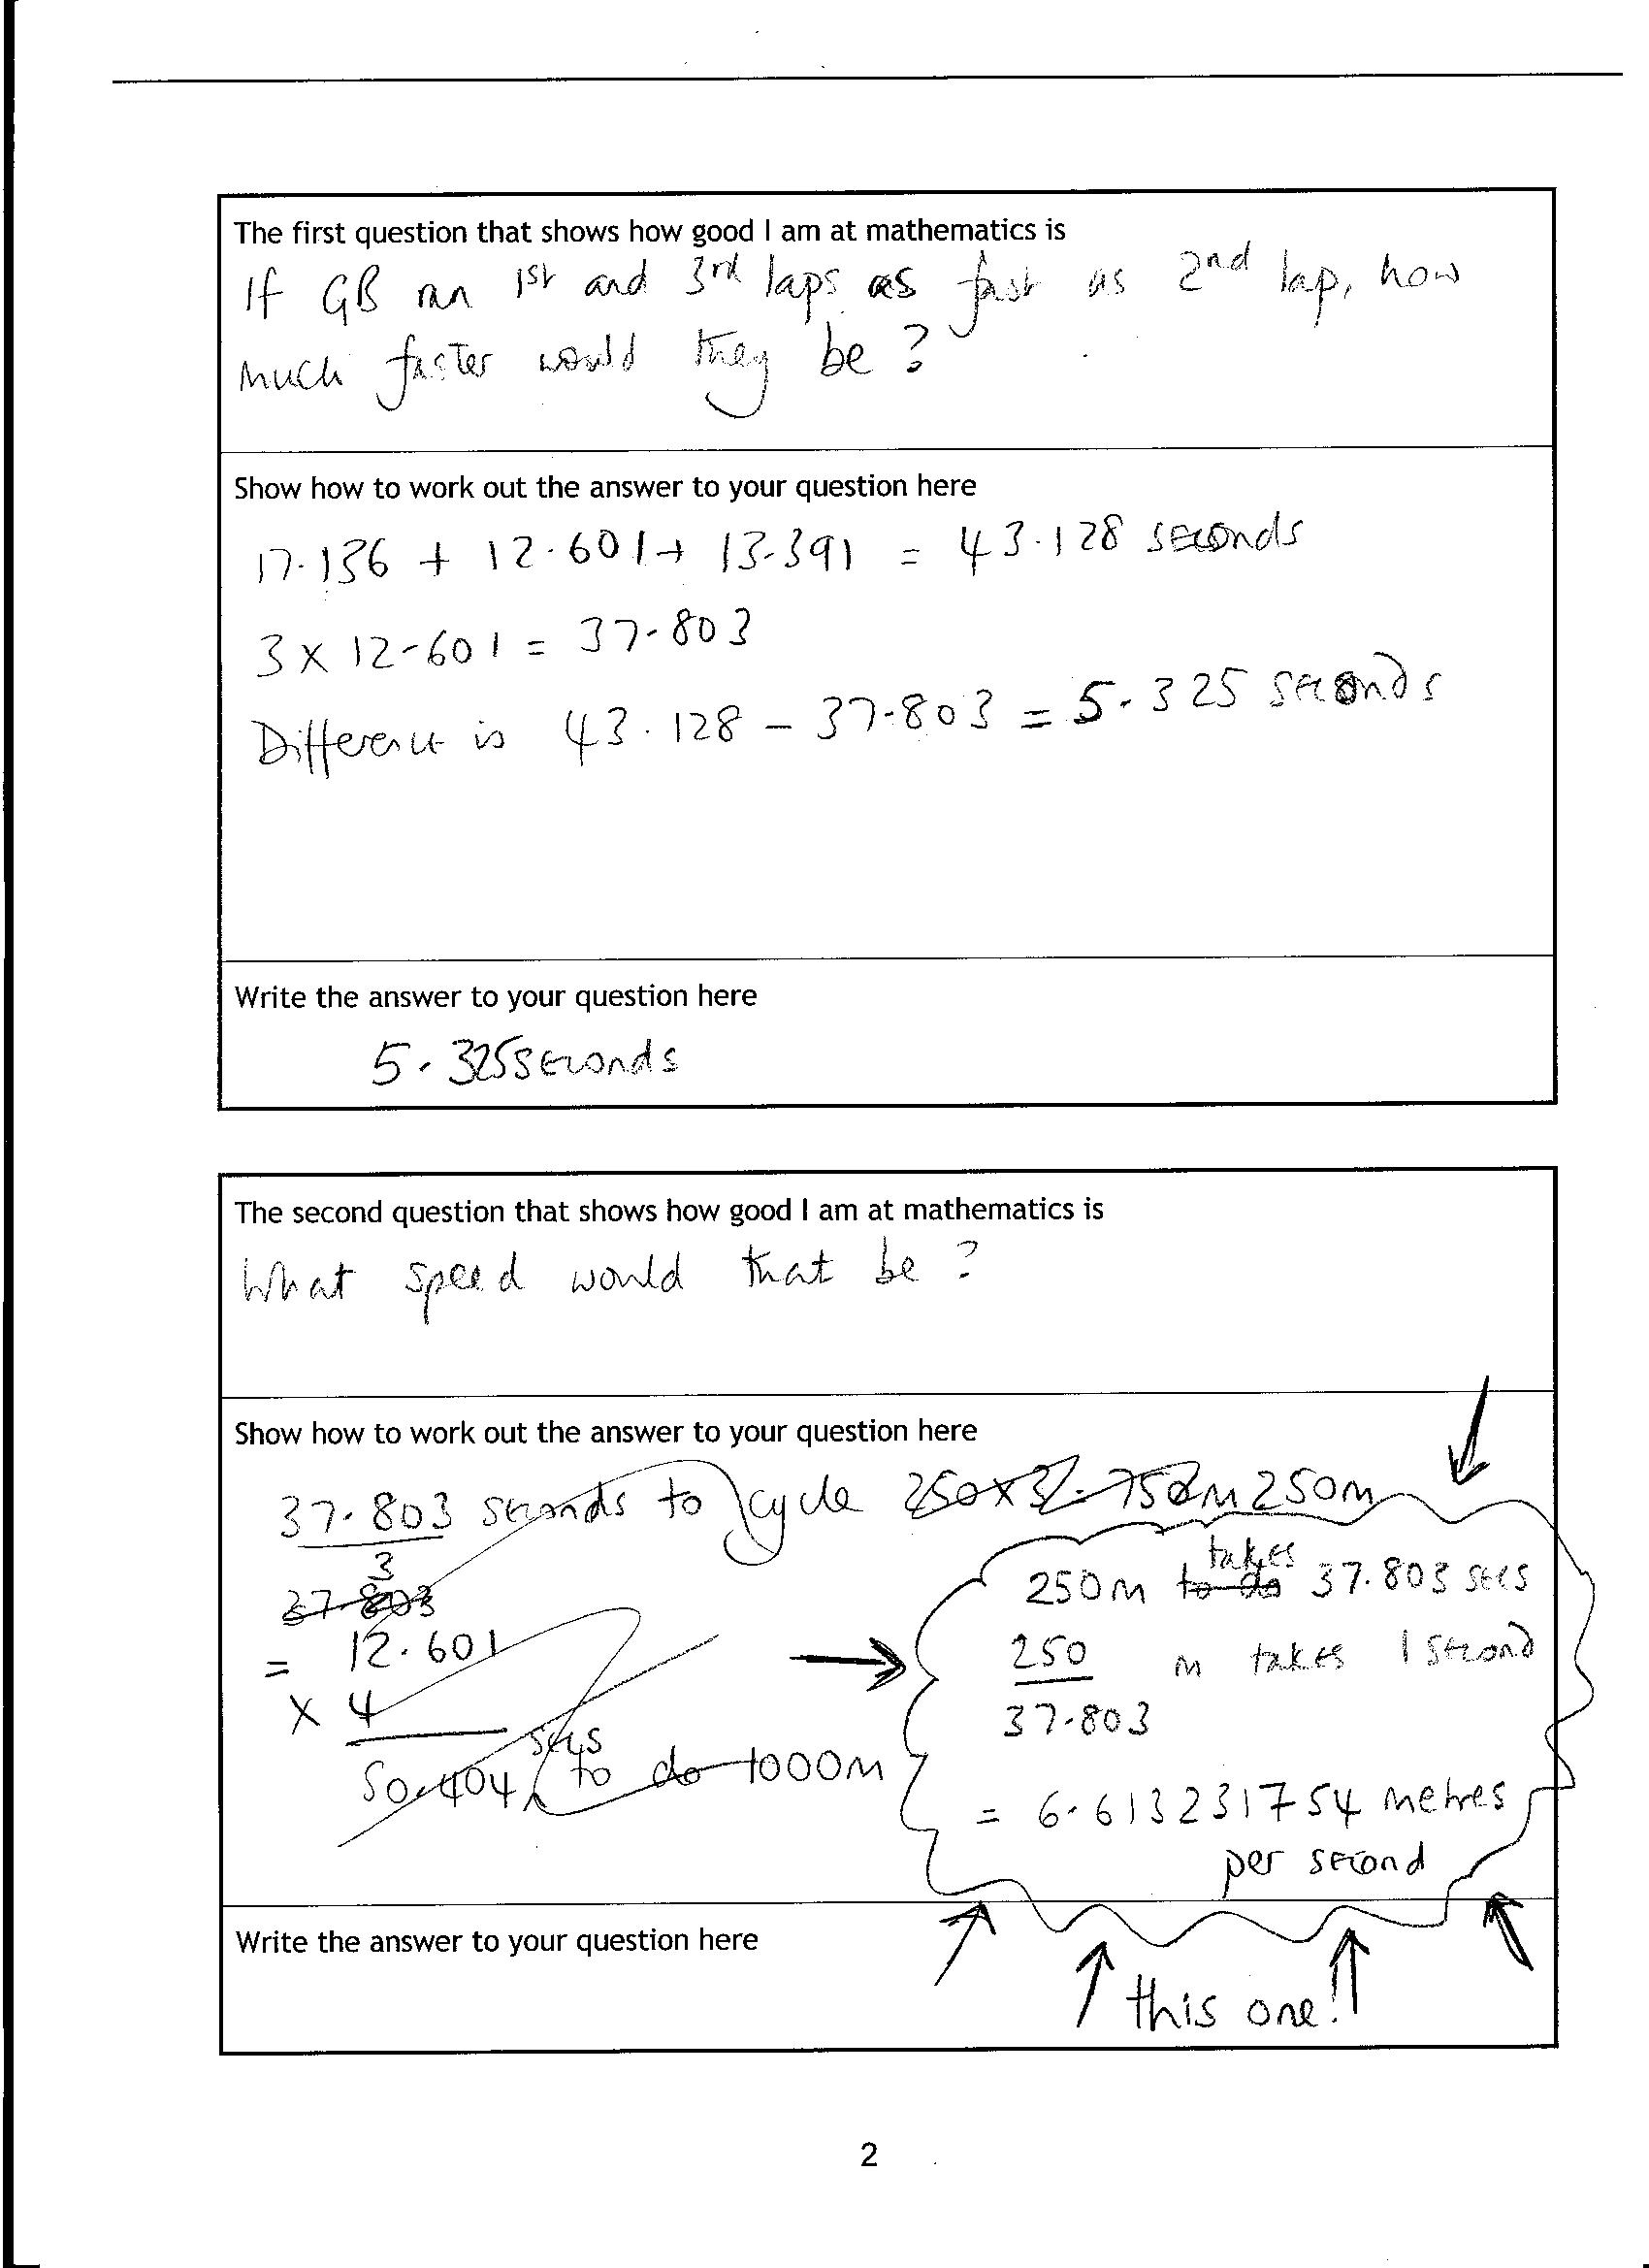 The first question that shows how good I am at mathematics is
If GB ran 1st and 3rd laps as fast as 2nd lap, how
much faster would they be?
Show how to work out the answer to your question here
17.136 + 12.601 + 13.391 = 43.128 seconds
3 x 12.601 = 37.803
Difference is 43.128 – 37.803 = 5.325 seconds
Write the answer to your question here
5.325 seconds
The second question that shows how good I am at mathematics is
What speed would that be?
Show how to work out the answer to your question here
37.803 seconds to cycle 250x3 = 750m 250m
3
37.803
= 12.601
x 4
50.404 secs to do 1000m
250m to do takes 37.803 secs
250 m takes 1 second
37.803
= 6.613231754 metres
per second
Write the answer to your question here
this one!
2